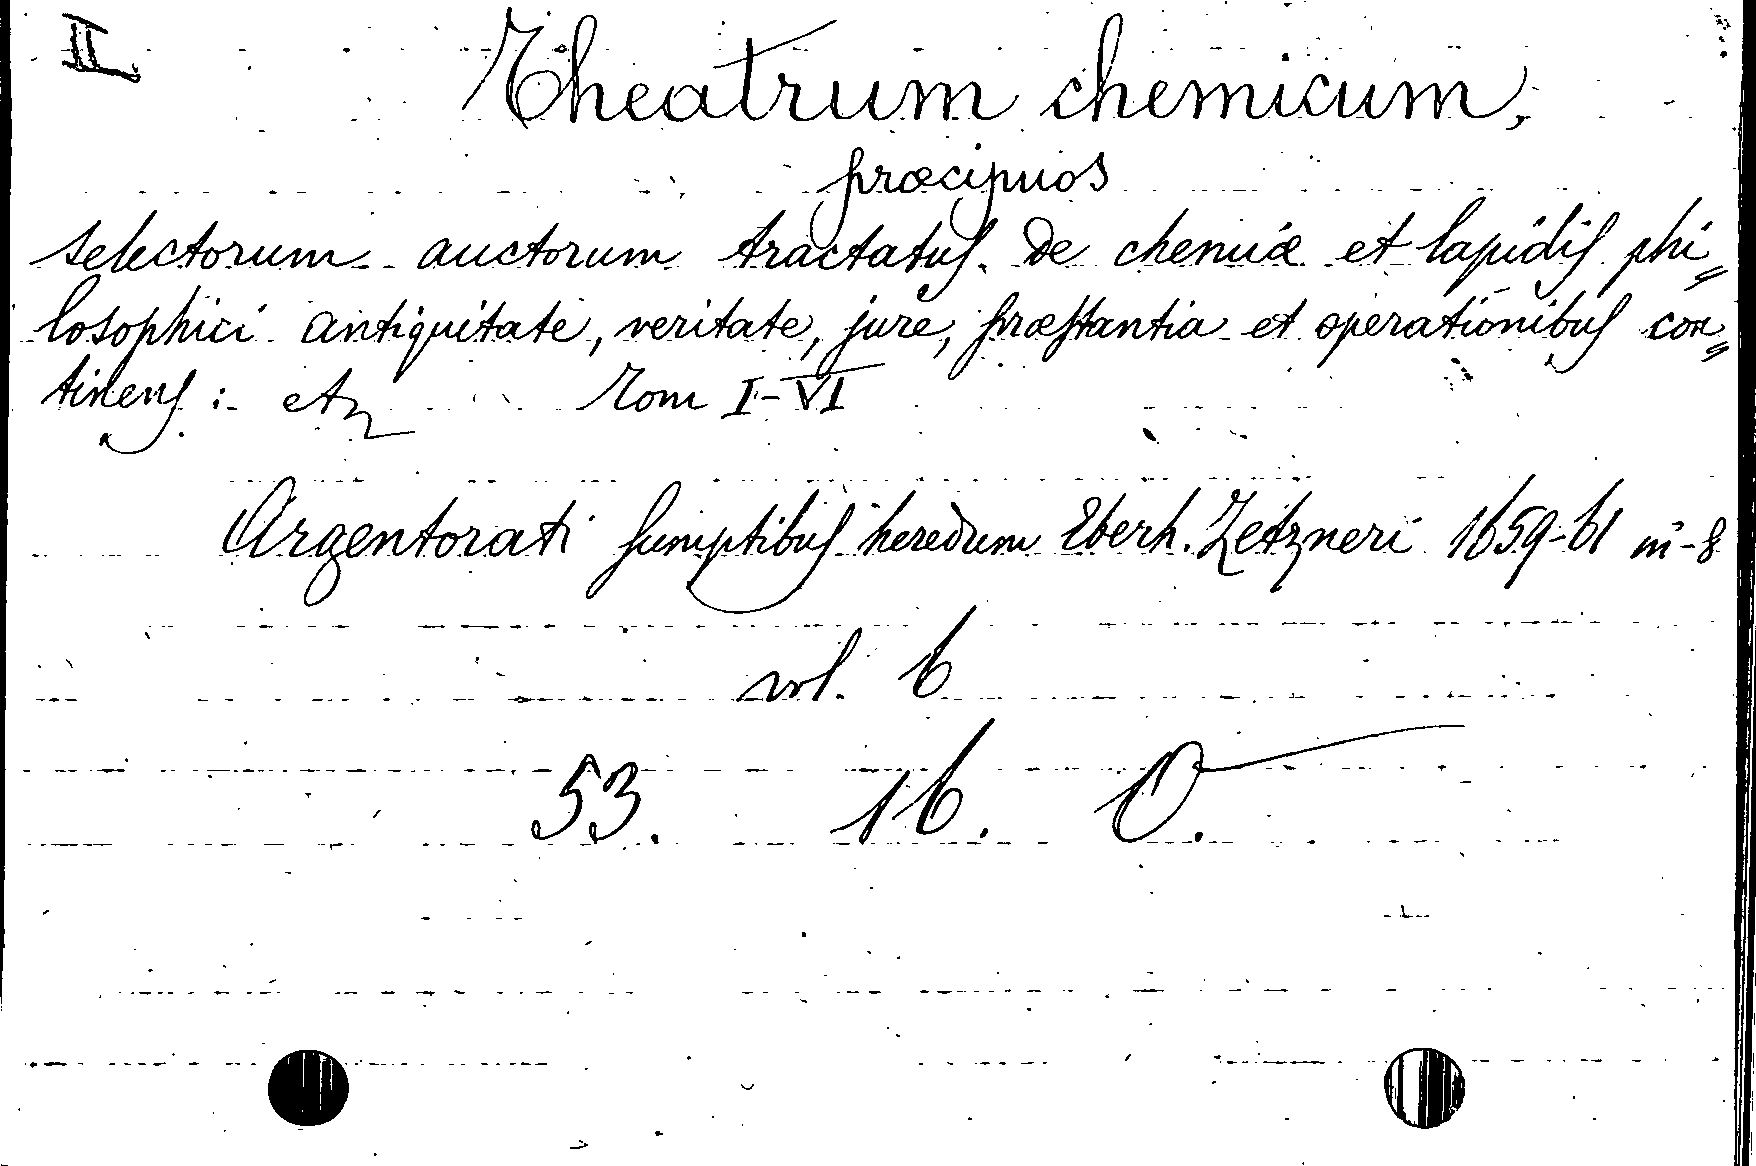 II
Theatrum chemicum,
præcipuos
selectorum auctorum tractatus. De chemiæ et lapidis phi=
losophici antiquitate, veritate, jure, præstantia et operationibus con=
tinens: etz Tom I-VI
Argentorati sumptibus heredum Eberh. Zetzneri 1659-61 in-8
vol. 6
53. 16. O.